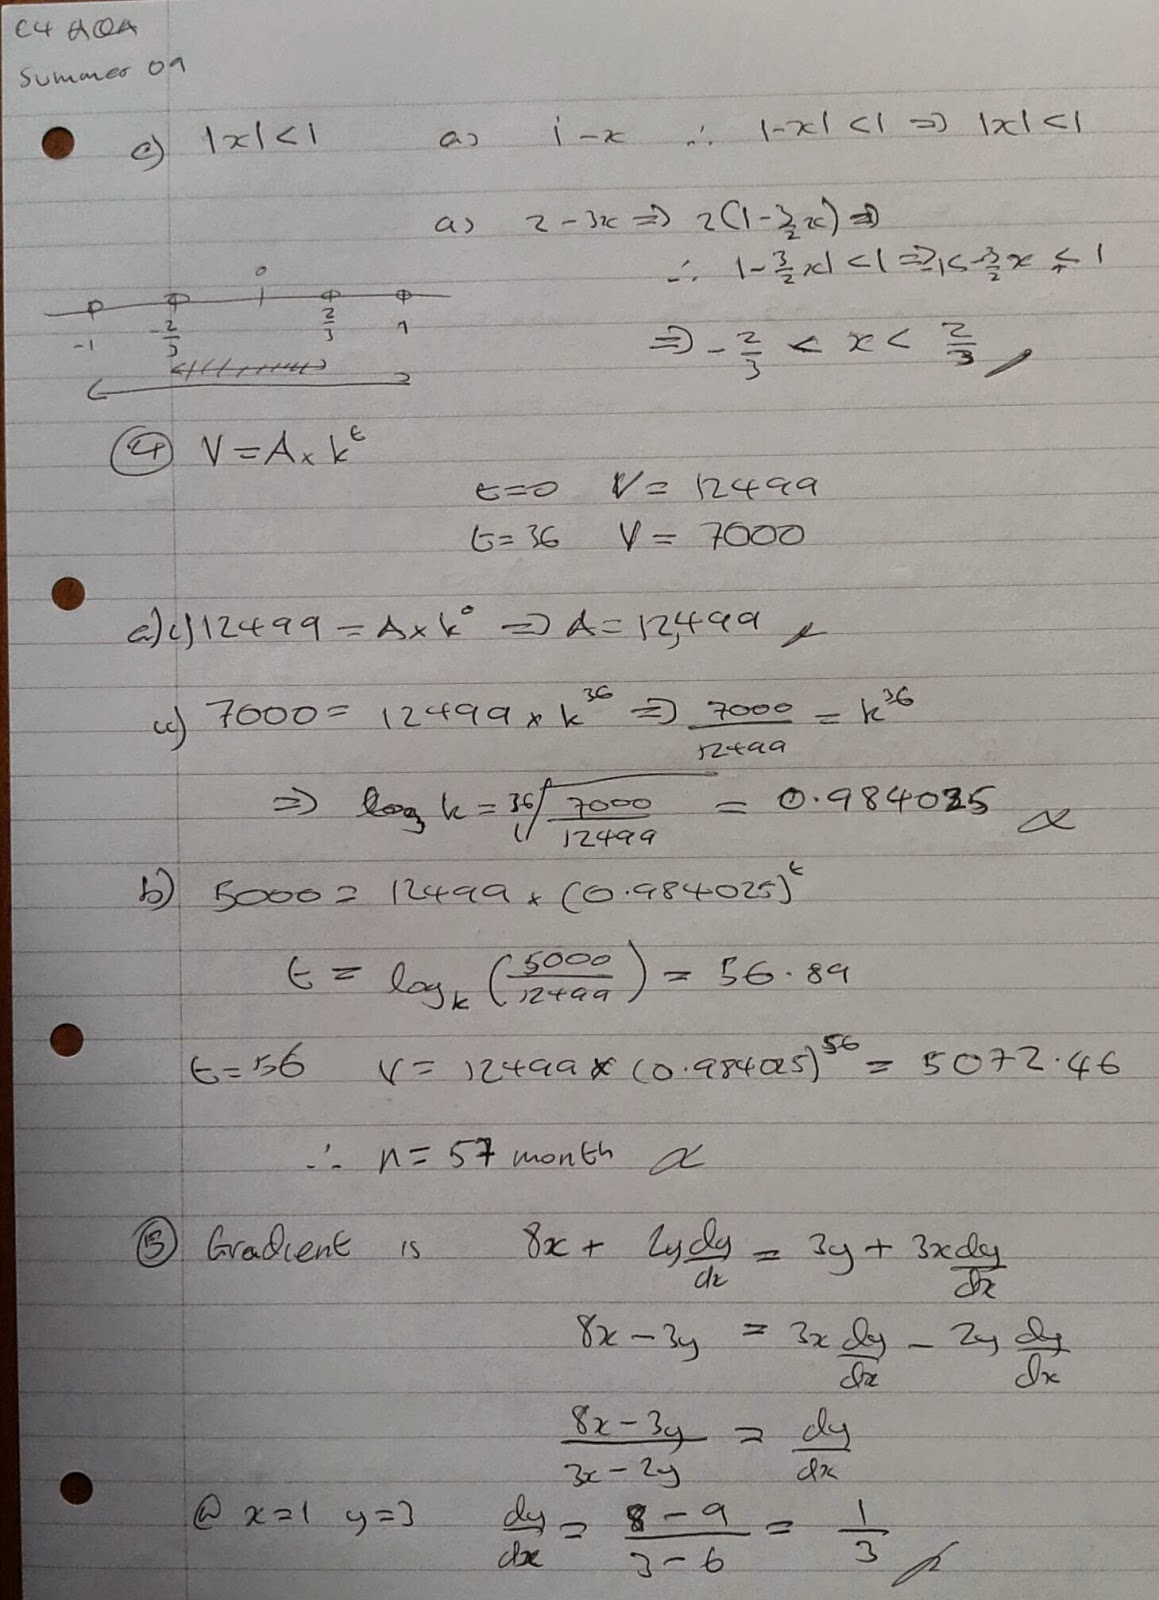 C4 AQA
Summer 09
c) |x|<1 a) 1-x ∴ |-x|<1 ⇒ |x|<1
a) 2-3x ⇒ 2(1-3/2x) ⇒
∴ |-3/2x|<1 ⇒ -1<-3/2x<1
0
-1 -2/3 2/3 1
⇒ -2/3 < x < 2/3
④ V=A×k^t
t=0 V=12499
t=36 V=7000
a)i) 12499=A×k^0 ⇒ A=12,499
ii) 7000=12499×k^36 ⇒ 7000/12499=k^36
⇒ k=36√(7000/12499)=0.984025
b) 5000=12499×(0.984025)^t
t=log_k(5000/12499)=56.89
t=56 V=12499×(0.984025)^56=5072.46
∴ n=57 month
⑤ Gradient is 8x+2y dy/dx=3y+3x dy/dx
8x-3y=3x dy/dx-2y dy/dx
(8x-3y)/(3x-2y)=dy/dx
@ x=1 y=3 dy/dx=(8-9)/(3-6)=1/3